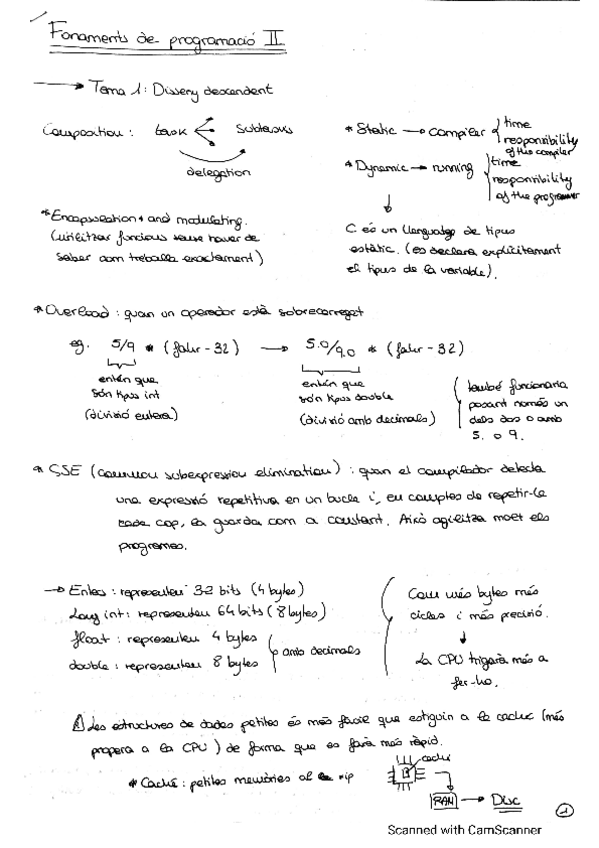 Fonaments de programació II
→ Tema 1: Disseny descendent
Composition: task < subtasks
delegation
* Static → compiler { time
responsibility
of the compiler
* Dynamic → running { time
responsibility
of the programmer
* Encapsulation and modulating.
(utilitzar funcions sense haver de
saber com treballa exactament)
C és un llenguatge de tipus
estàtic. (es declara explícitament
el tipus de la variable).
* Overload: quan un operador està sobrecarregat
eg. 5/9 * (fahr - 32) → 5.0/9.0 * (fahr - 32)
entén que
són tipus int
(divisió entera)
entén que
són tipus double
(divisió amb decimals)
també funcionaria
posant només un
dels dos o amb
5. o 9.
* CSE (common subexpression elimination): quan el compilador detecta
una expressió repetitiva en un bucle i, en comptes de repetir-la
cada cop, la guarda com a constant. Això agilitza molt els
programes.
→ Enters: representen 32 bits (4 bytes)
Long int: representen 64 bits (8 bytes)
float: representen 4 bytes
double: representen 8 bytes
amb decimals
Com més bytes més
cicles i més precisió.
↓
La CPU trigarà més a
fer-ho.
Les estructures de dades petites és més fàcil que estiguin a la caché (més
propera a la CPU) de forma que es farà més ràpid.
* Caché: petites memòries al xip
caché
RAM → Disc
1
Scanned with CamScanner